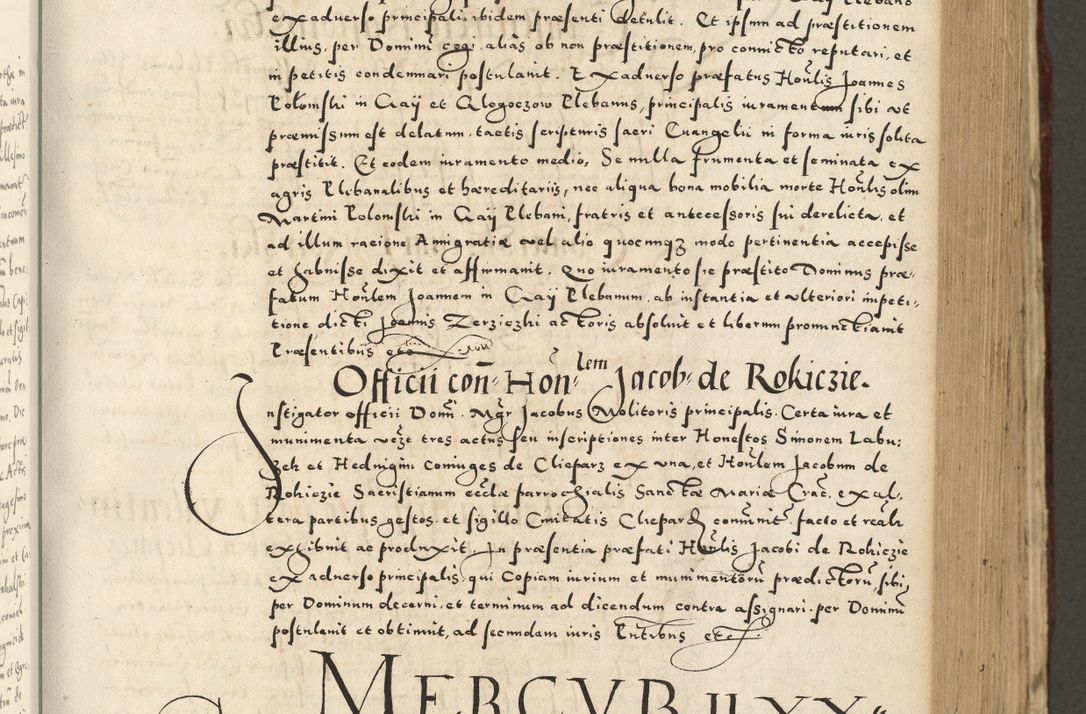 ex adverso principali ibidem præsenti detulit. Et ipsum ad præstitionem
illius, per Dominū cogi. aliàs ob non præstitionem, pro convicto reputari, et
in petitis condemnari postulavit. Ex adverso præfatus Honlis Joannes
Polomski in Gay et Glogoczow Plebanus, principalis iuramentum sibi ut
præmissum est delatum. tactis scripturis sacri Euangelii in forma iuris solita
præstitit. Et eodem iuramento medio, Se nulla frumenta et seminata ex
agris Plebanalibus et hæreditariis, nec aliqua bona mobilia morte Honlis olim
Martini Polomski in Gay Plebani, fratris et antecessoris sui derelicta. et
ad illum racione Amigratiæ vel alio quocunqȝ modo pertinentia accepisse
et habuisse dixit et affirmavit. Quo iuramento sic præstito Dominus præ-
fatum Honlem Joannem in Gay Plebanum. ab instantia et ulteriori impeti-
tione dicti Joannis Zerziczki actoris absolvit et liberum pronunctiavit
Præsentibus etc
Officii con: Honlem Jacob: de Rokiczie.
Instigator officii Domī. Mgr Jacobus Molitoris principalis. Certa iura et
munimenta vezt tres actus seu inscriptiones inter Honestos Simonem Labu:
zek et Hedvigim coniuges de Clieparz ex una, et Honlem Jacobum de
Rokiczie Sacristianum ecclæ parrochialis Sanctæ Mariæ Crac, ex al-
tera partibus gestos. et sigillo Civitatis Cliepard communit. facto et reali
exhibuit ac produxit. In præsentia præfati Honlis Jacobi de Rokiczie
ex adverso principalis, qui Copiam iurium et munimentorū prædictorū, sibi
per Dominum decerni. et terminum ad dicendum contra assignari. per Dominū
postulavit et obtinuit, ad secundam iuris Pntibus etc.
MERCVRII XX